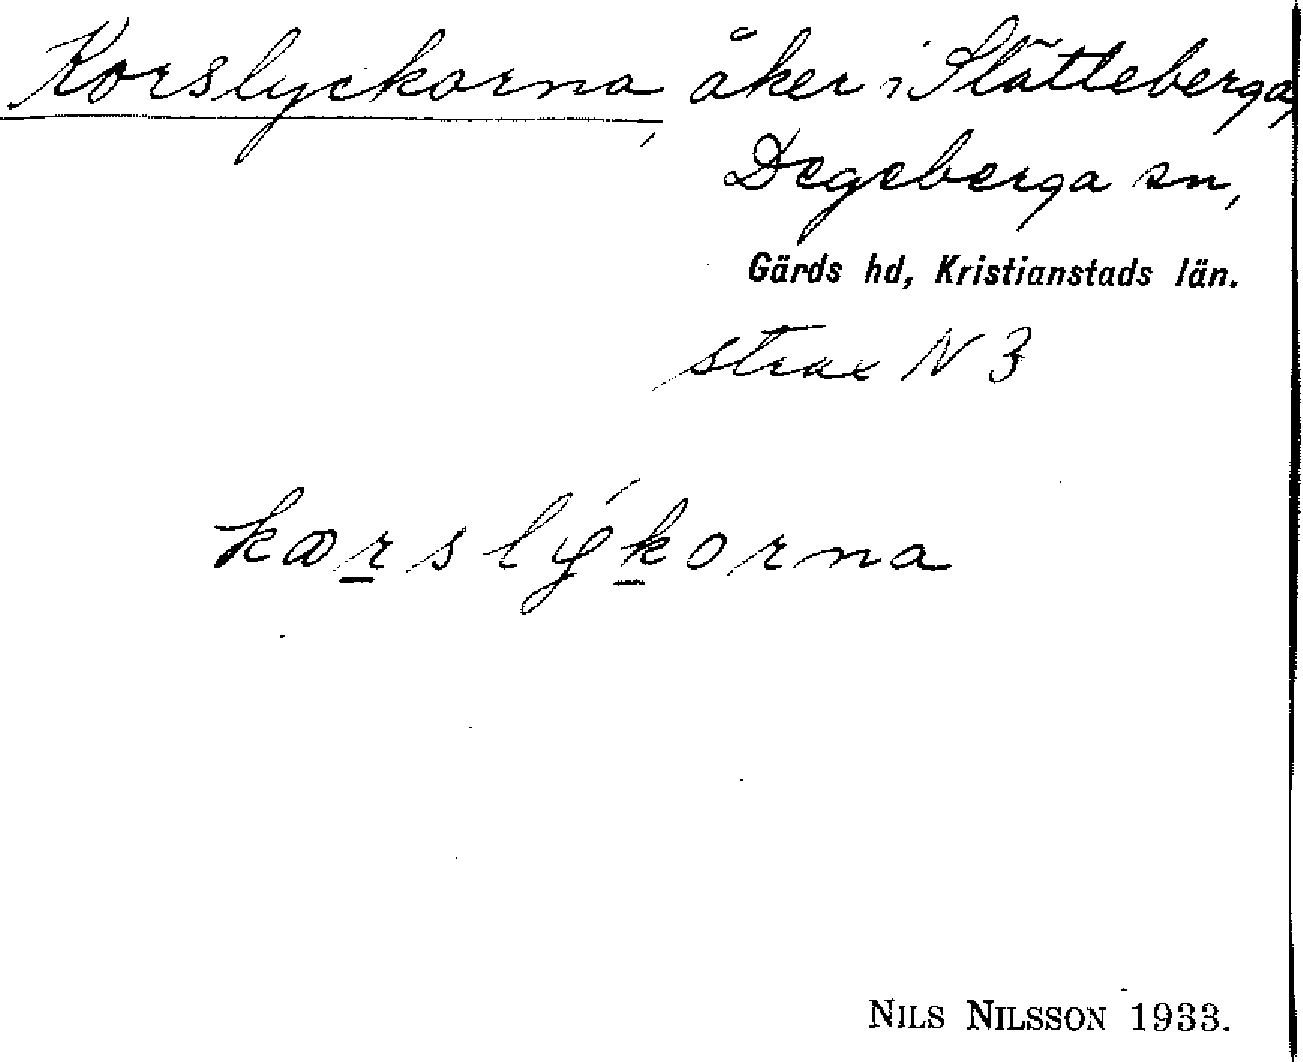 Korslyckorna, åker i Slätteberga,
Degeberga sn,
Gärds hd, Kristianstads län.
strax N 3
kœrslýkorna
NILS NILSSON 1933.